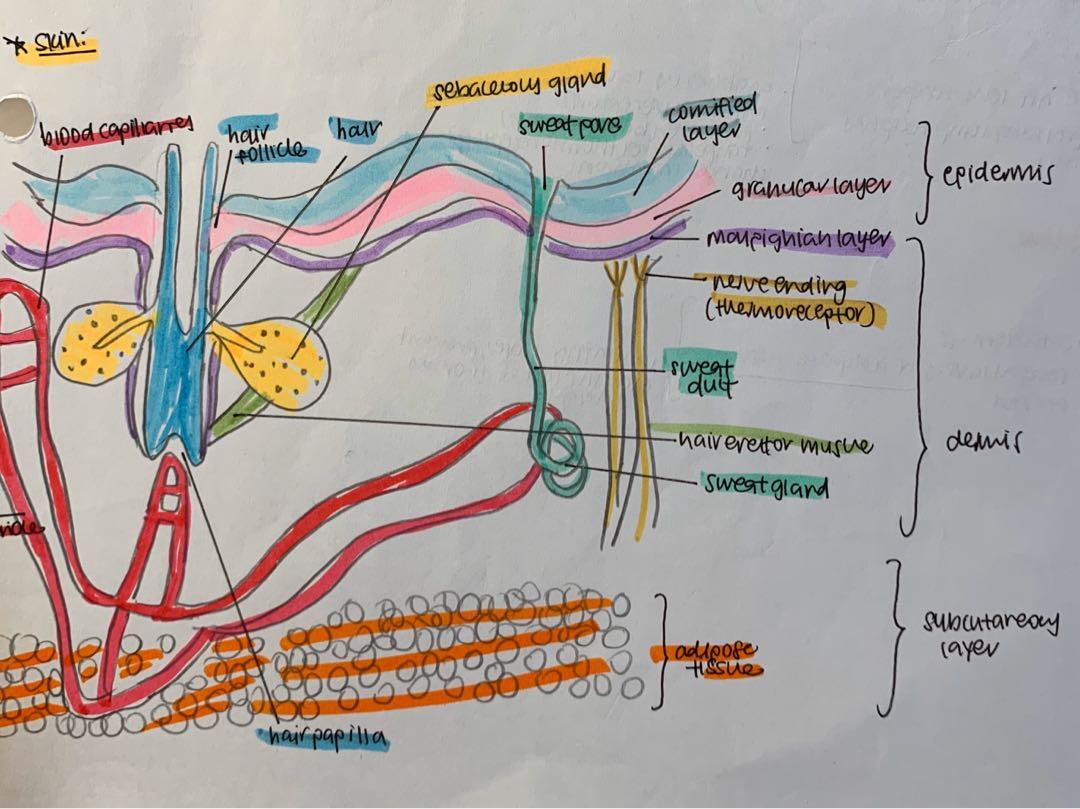 * skin:
sebaceous gland
blood capillaries
hair
follicle
hair
sweat pore
cornified
layer
granular layer
epidermis
malpighian layer
nerve ending
(thermoreceptor)
sweat
duct
hair erector muscle
dermis
sweat gland
subcutaneous
layer
adipose
tissue
hair papilla